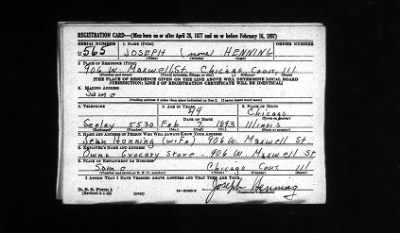 REGISTRATION CARD—(Men born on or after April 28, 1877 and on or before February 16, 1897)
SERIAL NUMBER 1. NAME (Print) ORDER NUMBER
U 565 JOSEPH (none) HENNING
(First) (Middle) (Last)
2. PLACE OF RESIDENCE (Print)
906 W. Maxwell St. Chicago Cook Ill
[THE PLACE OF RESIDENCE GIVEN ON THE LINE ABOVE WILL DETERMINE LOCAL BOARD
JURISDICTION; LINE 2 OF REGISTRATION CERTIFICATE WILL BE IDENTICAL]
3. MAILING ADDRESS
Same
[Mailing address if other than place indicated on line 2. If same insert word same]
4. TELEPHONE 5. AGE IN YEARS 6. PLACE OF BIRTH
49 Chicago
DATE OF BIRTH
Seeley 5530 Feb. 7 1893 Illinois
7. NAME AND ADDRESS OF PERSON WHO WILL ALWAYS KNOW YOUR ADDRESS
Henning (wife) 906 W. Maxwell St.
8. EMPLOYER'S NAME AND ADDRESS
Owns Grocery Store - 906 W. Maxwell St
9. PLACE OF EMPLOYMENT OR BUSINESS
Same Chicago Cook Ill
I AFFIRM THAT I HAVE VERIFIED ABOVE ANSWERS AND THAT THEY ARE TRUE.
D. S. S. Form 1
Joseph Henning